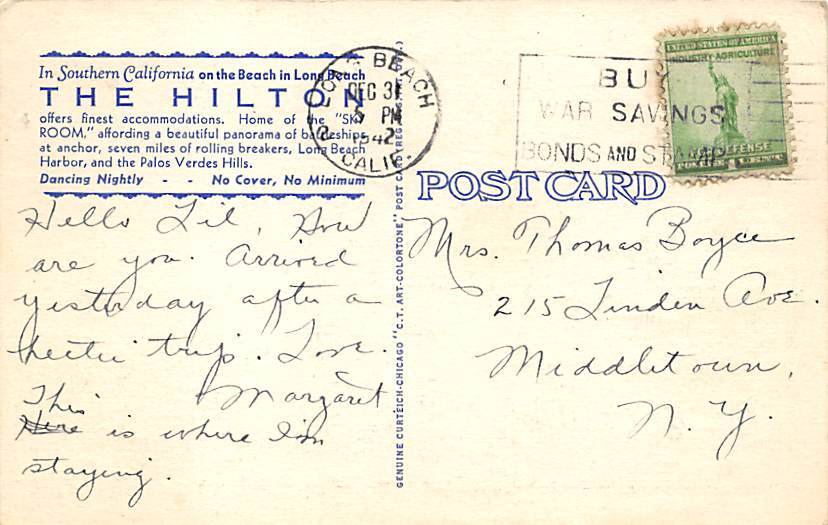 In Southern California on the Beach in Long Beach
THE HILTON
offers finest accommodations. Home of the "SKY
ROOM," affording a beautiful panorama of battleships
at anchor, seven miles of rolling breakers, Long Beach
Harbor, and the Palos Verdes Hills.
Dancing Nightly - - No Cover, No Minimum
LONG BEACH
DEC 31
5 PM
1942
CALIF.
BUY
WAR SAVINGS
BONDS AND STAMPS
UNITED STATES OF AMERICA
INDUSTRY-AGRICULTURE
DEFENSE
1 CENT
POST CARD
GENUINE CURTEICH-CHICAGO "C.T. ART-COLORTONE" POST CARD (REG.
Hello Lil, How
are you. Arrived
yesterday after a
hectic trip. Love.
Margaret
This
Here is where I'm
staying.
Mrs. Thomas Boyce
215 Linden Ave.
Middletown,
N.Y.